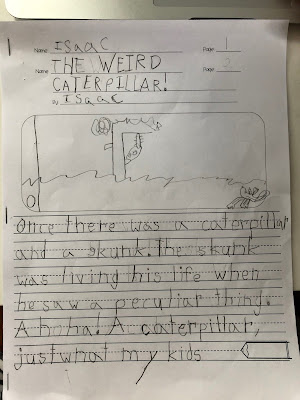 Name Isaac Page 1
Name THE WEIRD Page 2
CATERPILLAR!
by Isaac
Once there was a caterpillar
and a skunk. The skunk
was living his life when
he saw a peculiar thing.
Ahaha! A caterpillar,
just what my kids